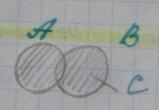 A B
C